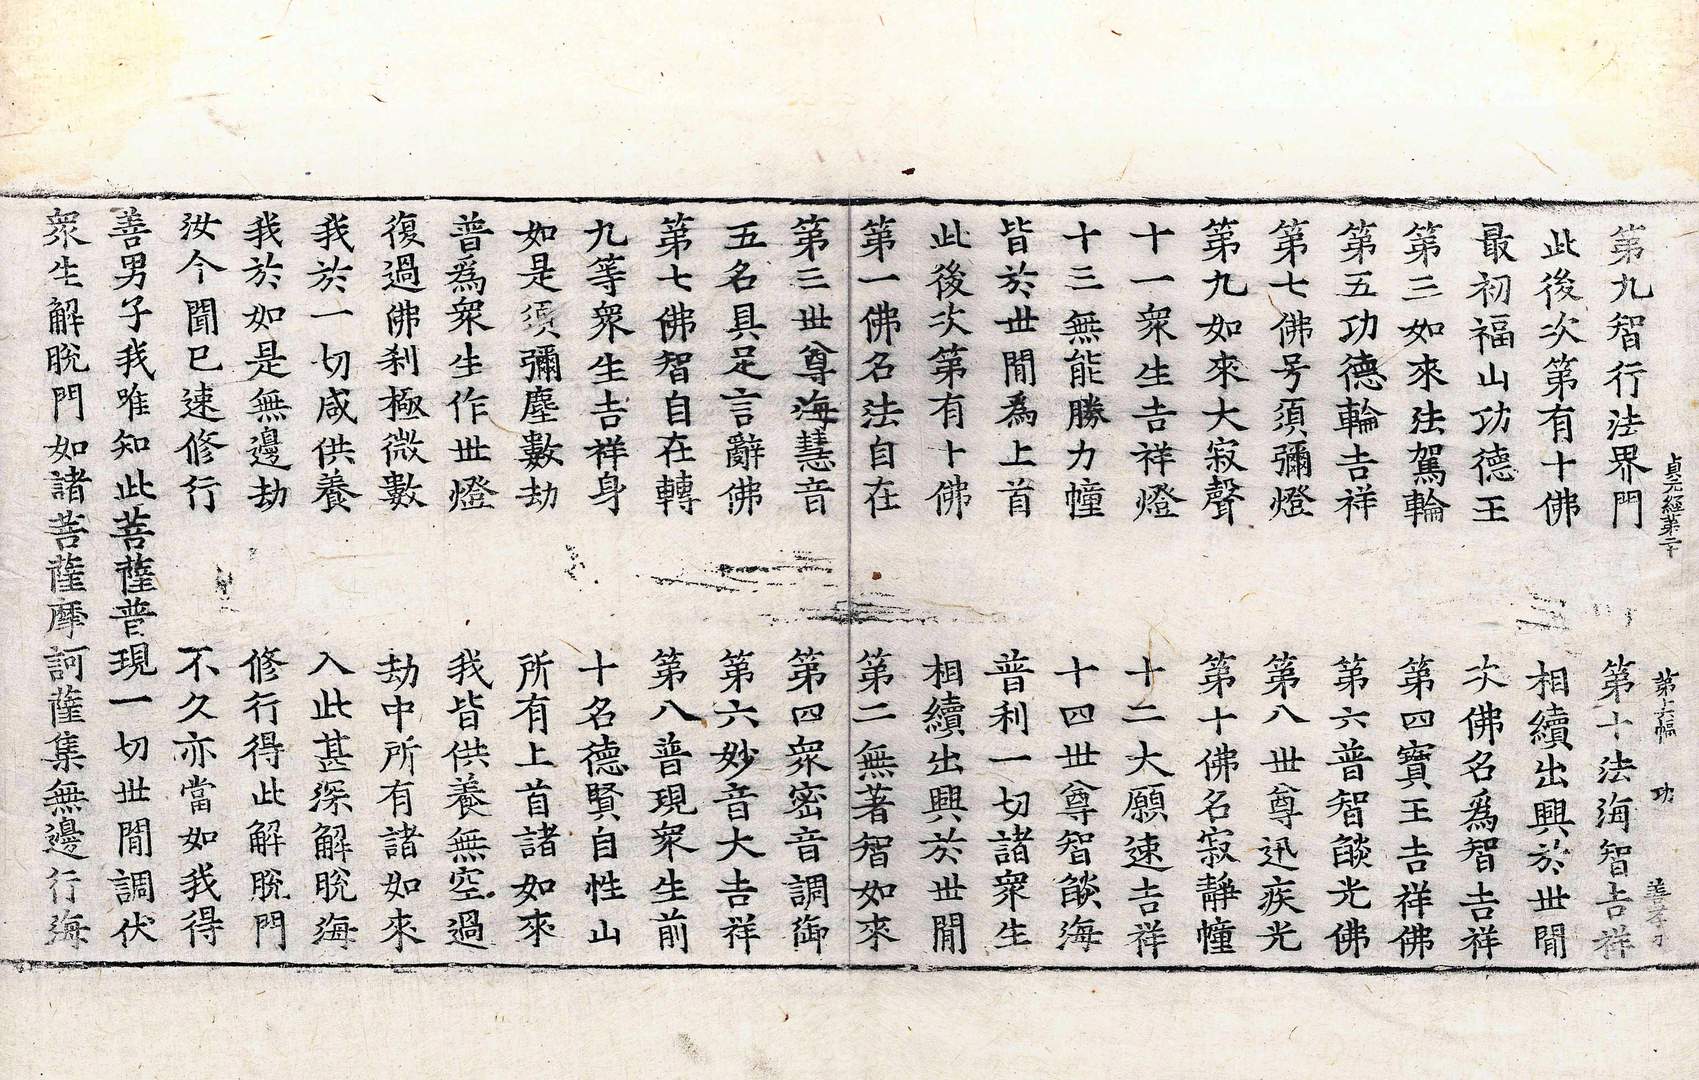 貞元經第二十 第十六幅 功 善才刀
第九智行法界門 第十法海智吉祥
此後次第有十佛 相續出興於世間
最初福山功德王 次佛名爲智吉祥
第三如來法駕輪 第四寶王吉祥佛
第五功德輪吉祥 第六普智𦦨光佛
第七佛号須彌燈 第八世尊迅疾光
第九如來大寂聲 第十佛名寂靜幢
十一衆生吉祥燈 十二大願速吉祥
十三無能勝力幢 十四世尊智𦦨海
皆於世間爲上首 普利一切諸衆生
此後次第有十佛 相續出興於世間
第一佛名法自在 第二無著智如來
第三世尊海慧音 第四衆密音調御
五名具足言辭佛 第六妙音大吉祥
第七佛智自在轉 第八普現衆生前
九等衆生吉祥身 十名德賢自性山
如是須彌塵數劫 所有上首諸如來
普爲衆生作世燈 我皆供養無空過
復過佛刹極微數 劫中所有諸如來
我於一切咸供養 入此甚深解脫海
我於如是無邊劫 修行得此解脫門
汝今聞已速修行 不久亦當如我得
善男子我唯知此菩薩普現一切世間調伏
衆生解脫門如諸菩薩摩訶薩集無邊行海